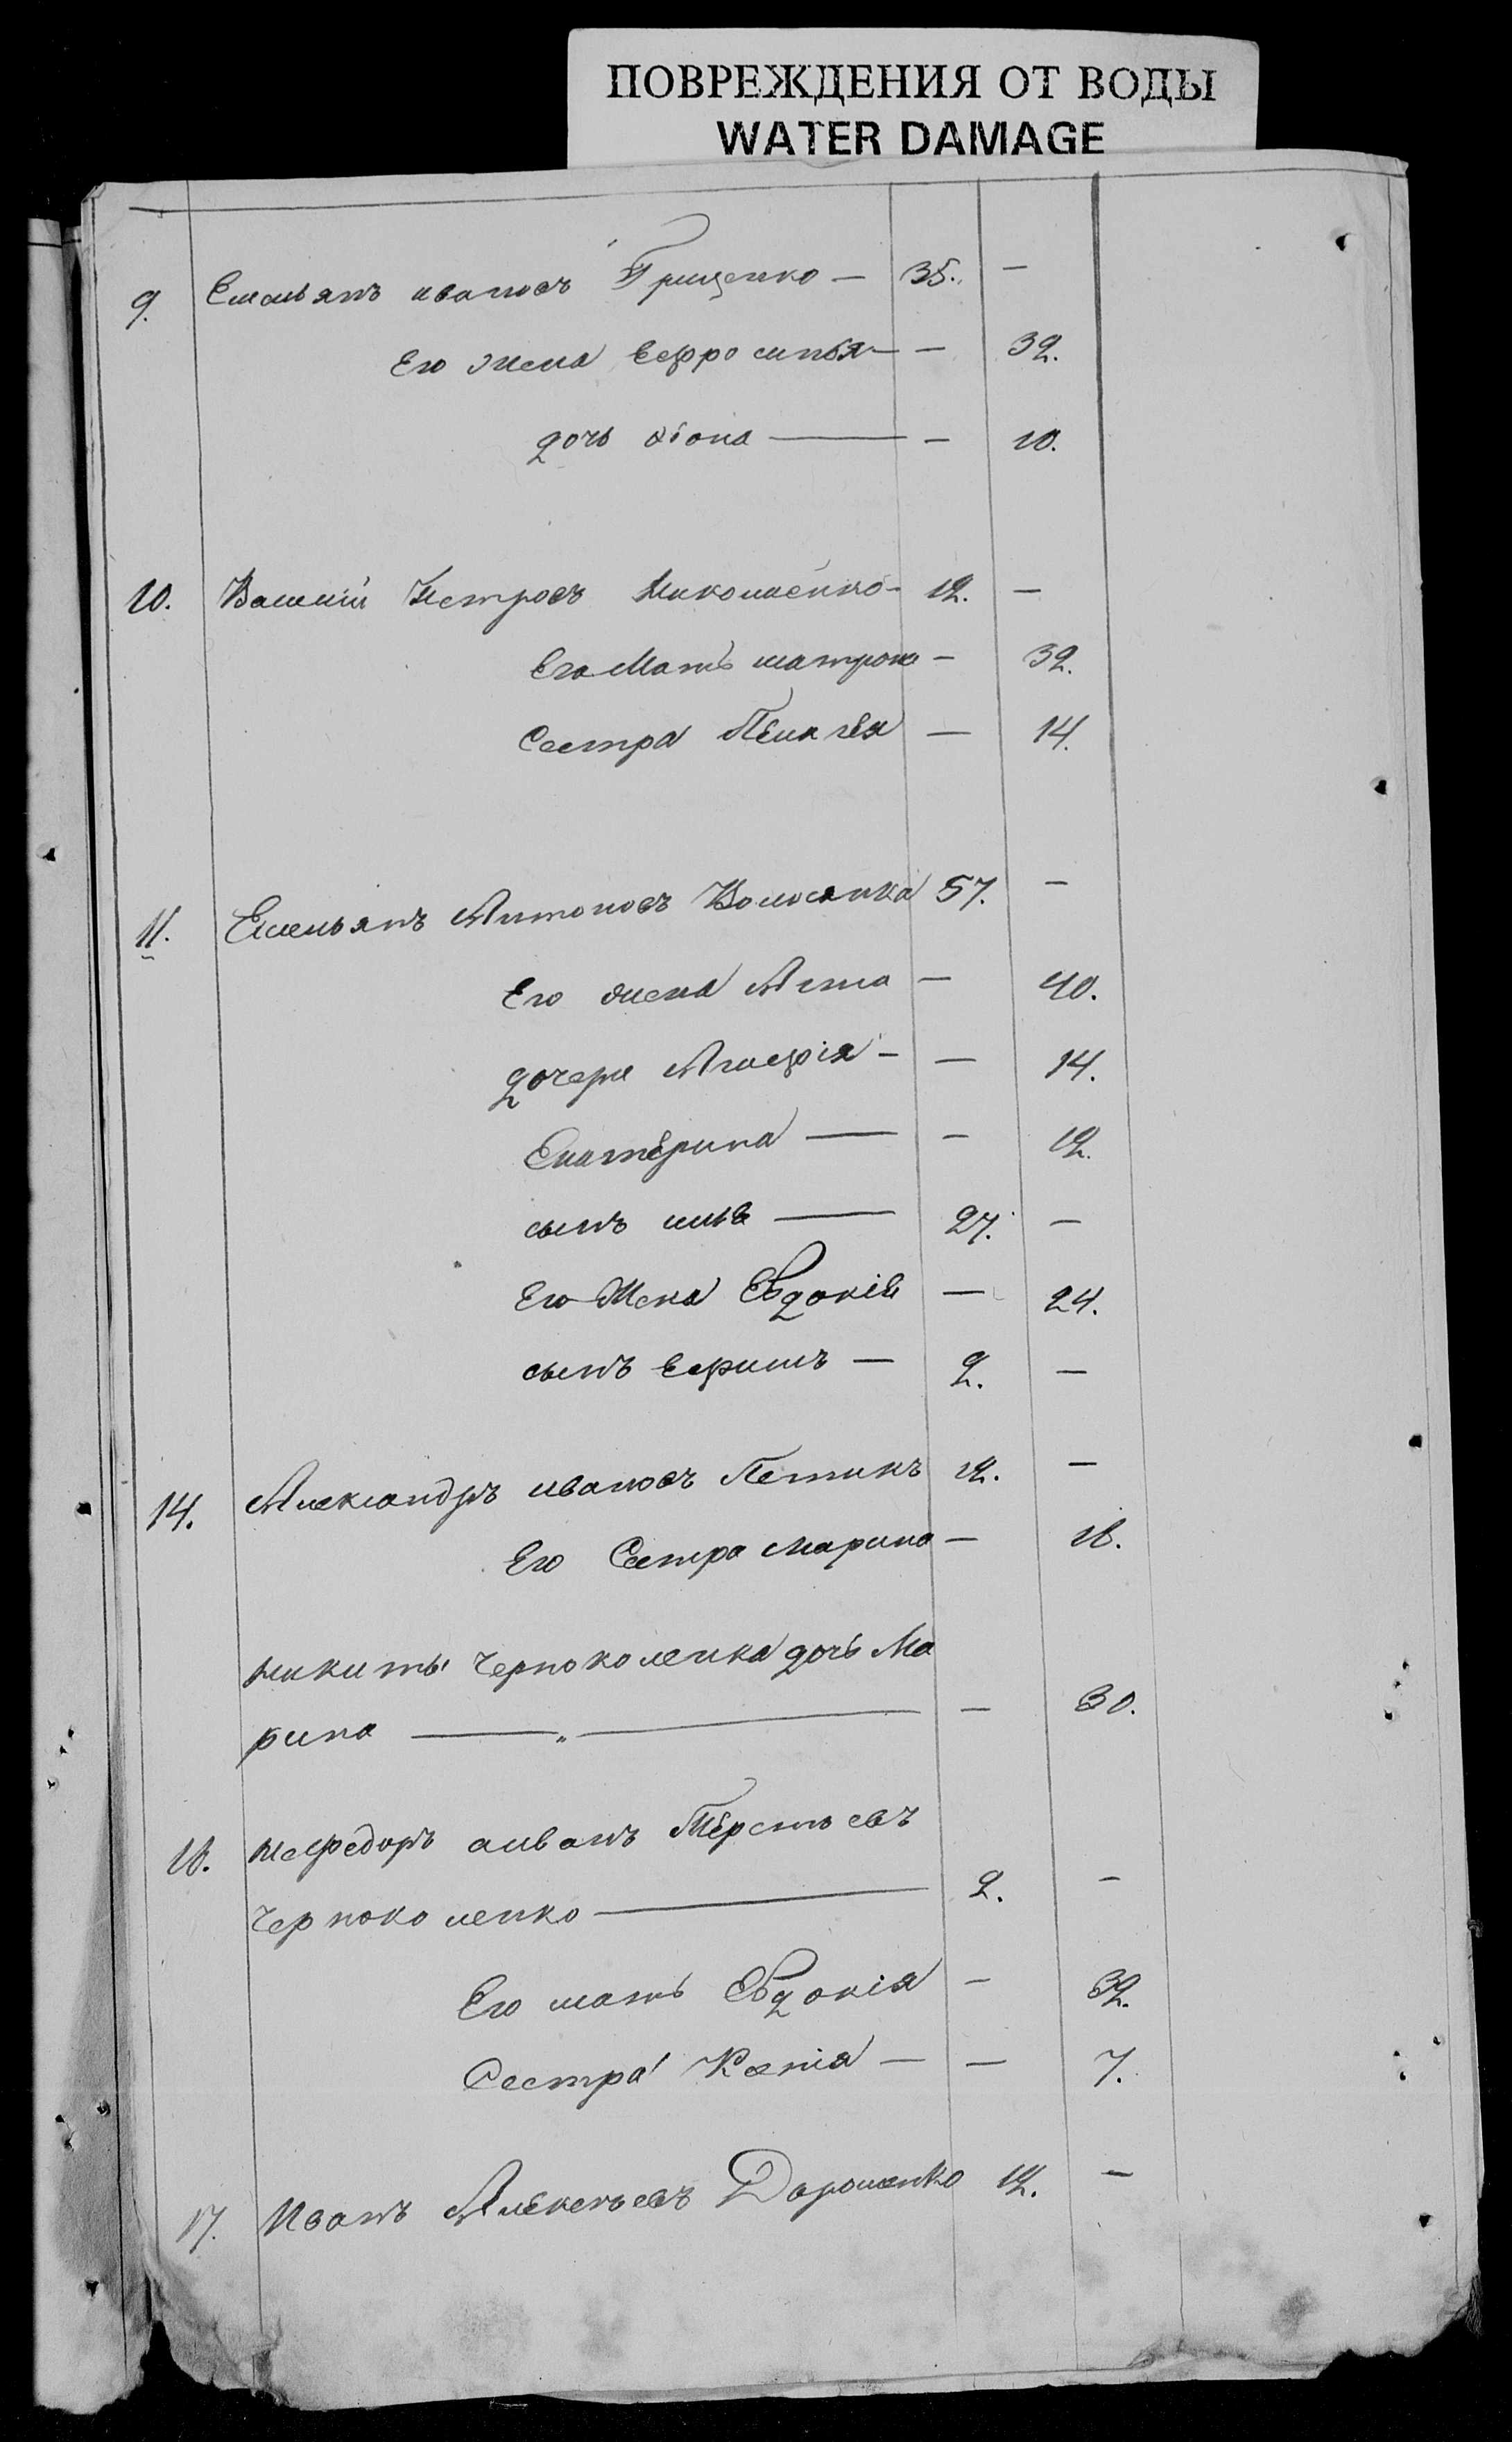 ПОВРЕЖДЕНИЯ ОТ ВОДЫ
WATER DAMAGE
9. Емельянъ ивановъ Грищенко — 35. —
Его жена Ефросинья — — 32.
дочь — 10.
10. Василий Петровъ Миколаенко - 12. —
Его Мать матрона — 32.
Сестра — 14.
11. Емельянъ Антоновъ Волосянка 57. —
Его жена Анна — 40.
дочери Агафія — — 14.
Екатерина — — 12.
сынъ илья — 27. —
Его Жена Евдокія — 24.
сынъ Ефимъ — 2. —
14. Александръ ивановъ Петикъ 12. —
Его Сестра марина — 18.
никиты Черноколенка дочь Ма
рина — „ — — 30.
16. нефедоръ Терентьевъ
Черноколенко — 2. —
Его мать Евдокія — 32.
Сестра Ксенія — — 7.
17. Иванъ Алексеевъ Дорошенко 12. —